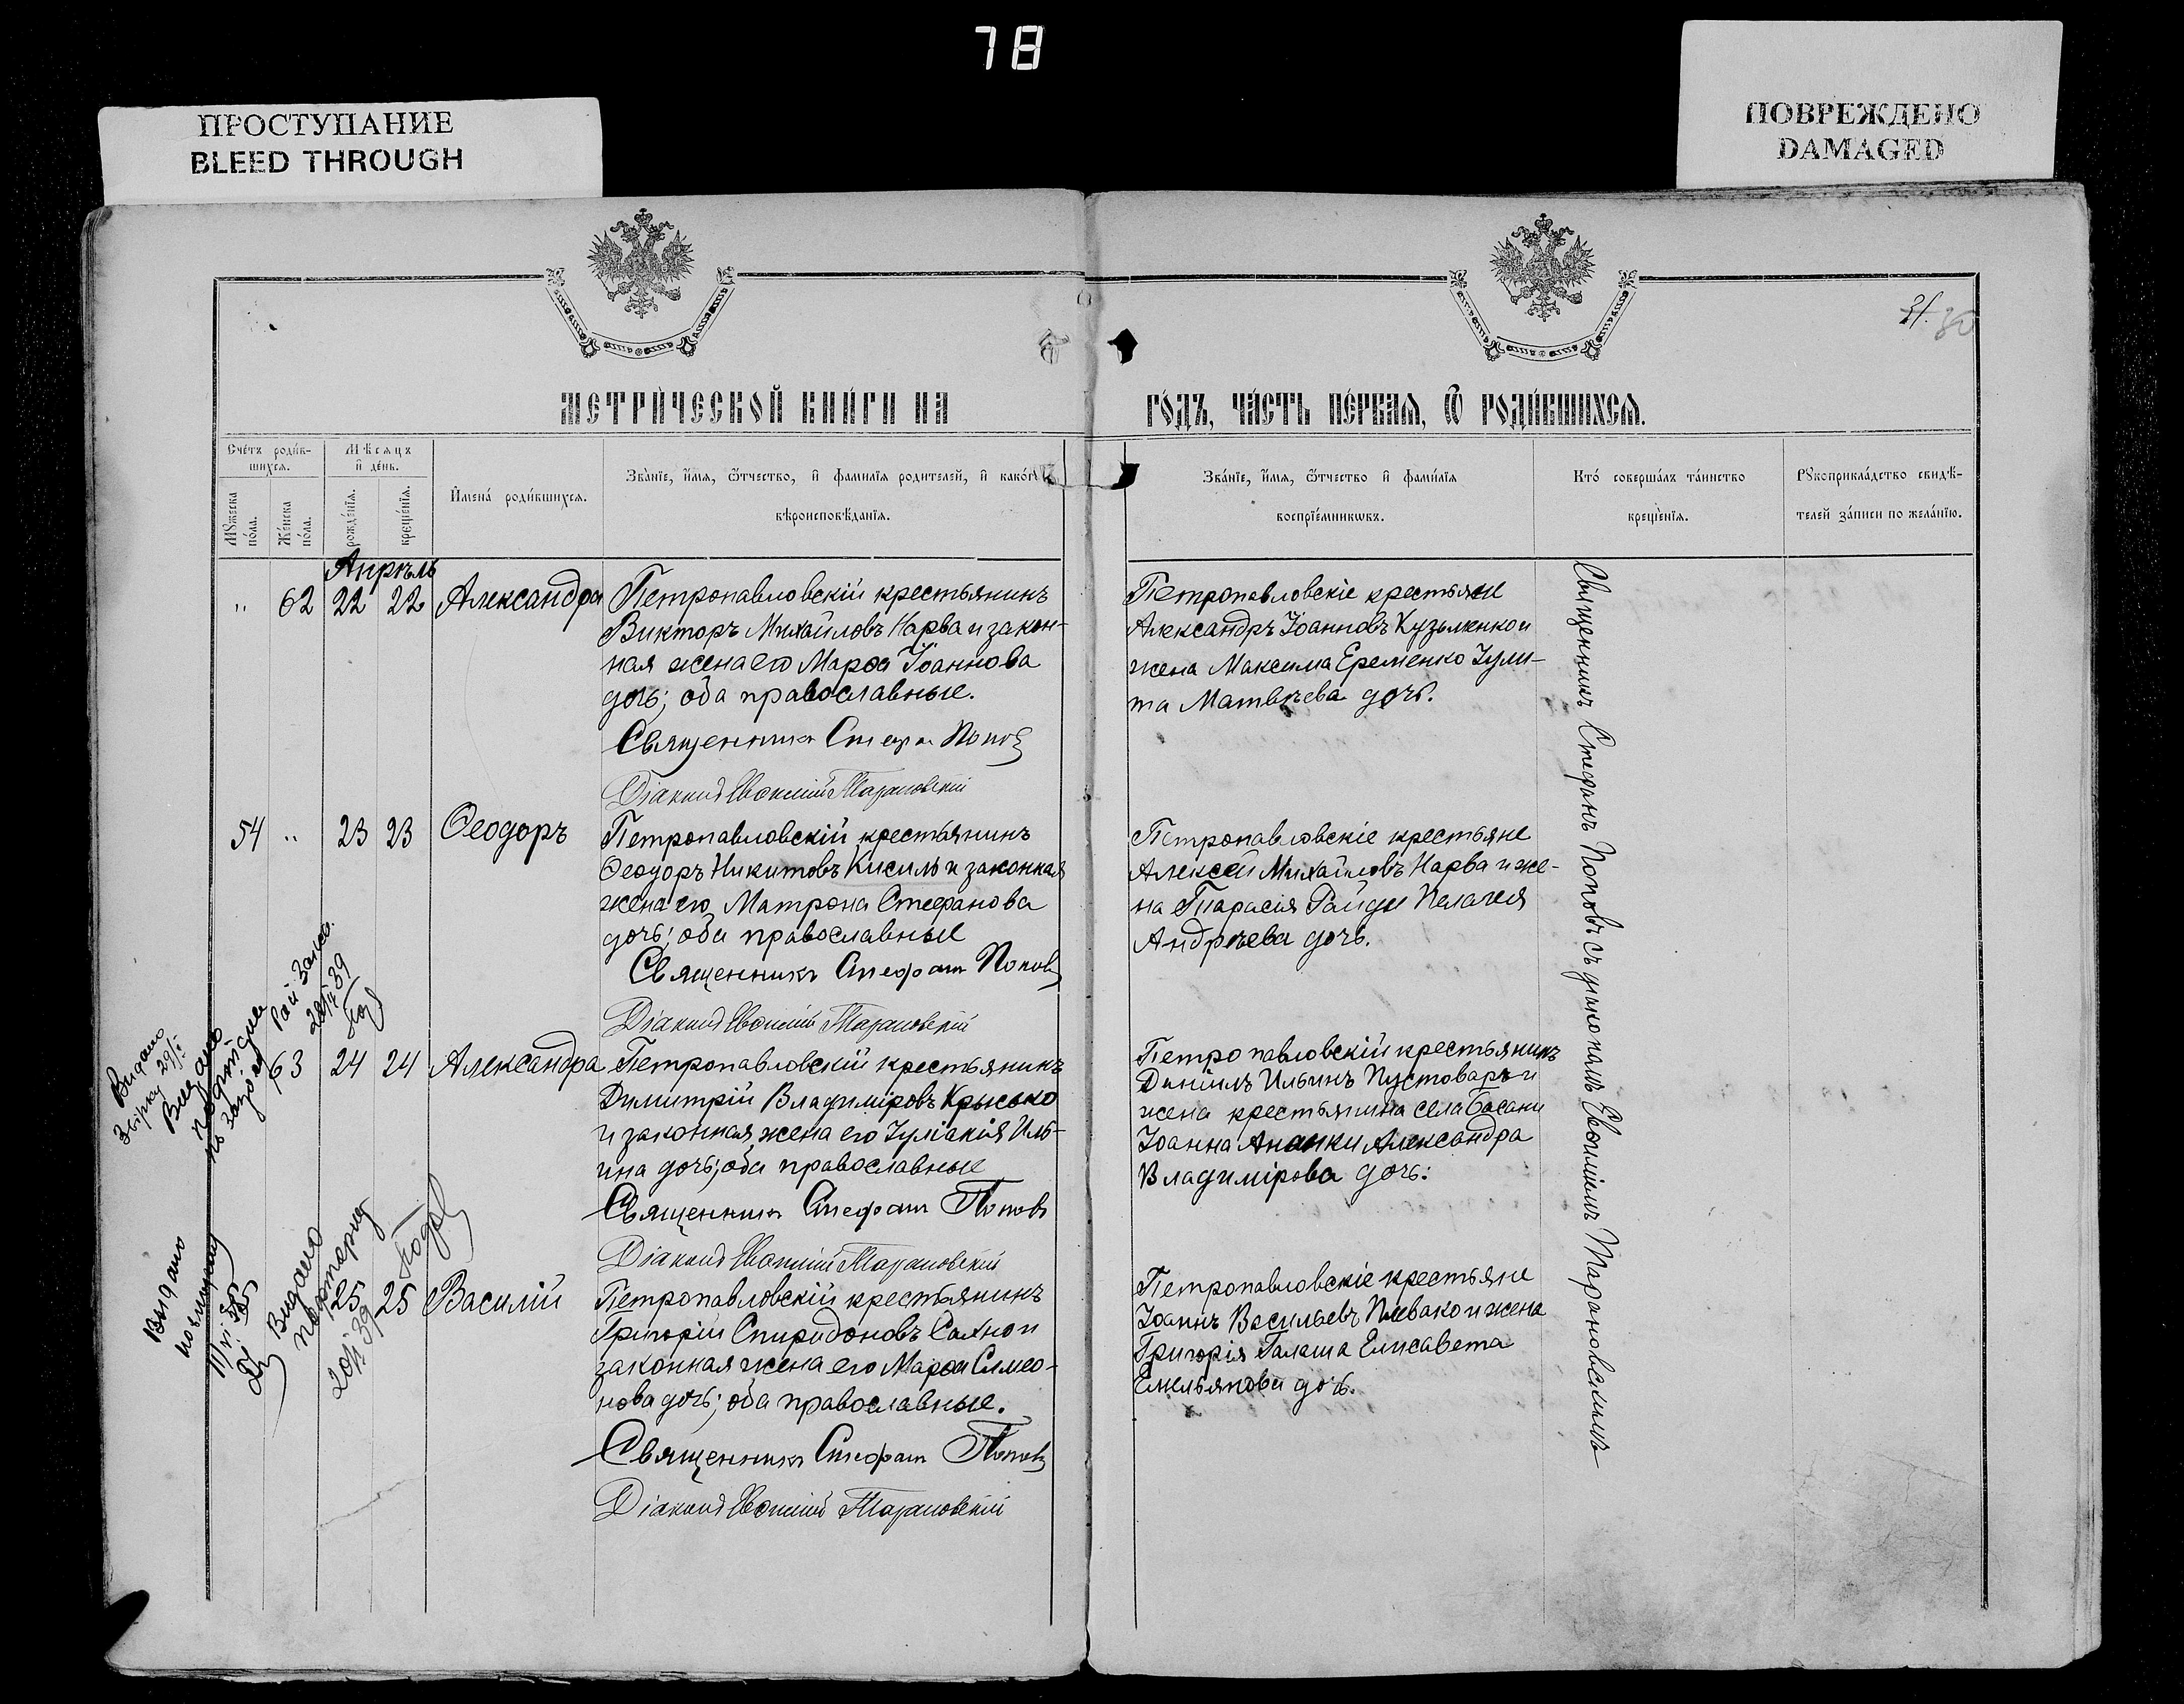 78
ПРОСТУПАНИЕ
BLEED THROUGH
ПОВРЕЖДЕНО
DAMAGED
31.
МЕТРИ́ЧЕСКОЙ КНИ́ГИ НА
ГО́ДЪ, ЧА́СТЬ ПЕ́РВАЯ, Ѡ РОДИ́ВШИХСЯ.
Сче́тъ роди́в-
шихся.
Мѣсяцъ
и де́нь.
Мꙋжеска
по́ла.
Же́нска
по́ла.
рожде́нїя.
креще́нїя.
Имена́ роди́вшихся.
Зва́нїе, и́мя, ѻ́тчество, и фамилїя родителей, и како́гѡ
вѣроисповѣ́данїя.
Зва́нїе, и́мя, ѻ́тчество и фами́лїя
воспрїе́мникѡвъ.
Кто́ соверша́лъ та́инство
креще́нїя.
Рꙋкоприкла́дство свидѣ́-
телей за́писи по жела́нїю.
Апрѣль
" 62 22 22 Александра
Петропавловскій крестьянинъ
Викторъ Михайловъ Нарва и закон-
ная жена его Марѳа Іоаннова
дочь; оба православные.
Священникъ Стефанъ Поповъ
Діаконъ Евѳимій Тарановскій
Петропавловскіе крестьяне
Александръ Іоанновъ Кузьменко и
жена Максима Еременко Іули-
та Матвѣева дочь.
54 " 23 23 Ѳеодоръ
Петропавловскій крестьянинъ
Ѳеодоръ Никитовъ Кисиль и законная
жена его Матрона Стефанова
дочь; оба православные
Священникъ Стефанъ Поповъ
Діаконъ Евѳимій Тарановскій
Петропавловскіе крестьяне
Алексѣй Михайловъ Нарва и же-
на Тарасія Гайди Пелагея
Андрѣева дочь.
63 24 24 Александра
Петропавловскій крестьянинъ
Димитрій Владиміровъ Крысько
и законная жена его Іуліанія Иль-
ина дочь; оба православные
Священникъ Стефанъ Поповъ
Діаконъ Евѳимій Тарановскій
Петропавловскій крестьянинъ
Даніилъ Ильинъ Пустоваръ и
жена крестьянина села Басани
Іоанна Ананки Александра
Владимірова дочь.
25 25 Василій
Петропавловскій крестьянинъ
Григорій Спиридоновъ Сахно и
законная жена его Марѳа Симео-
нова дочь; оба православные.
Священникъ Стефанъ Поповъ
Діаконъ Евѳимій Тарановскій
Петропавловскіе крестьяне
Іоаннъ Васильевъ Плевако и жена
Григорія Галаша Елисавета
Емельянова дочь.
Священникъ Стефанъ Поповъ съ діакономъ Евѳиміемъ Тарановскимъ
Видано
Видано
Видано
Видано